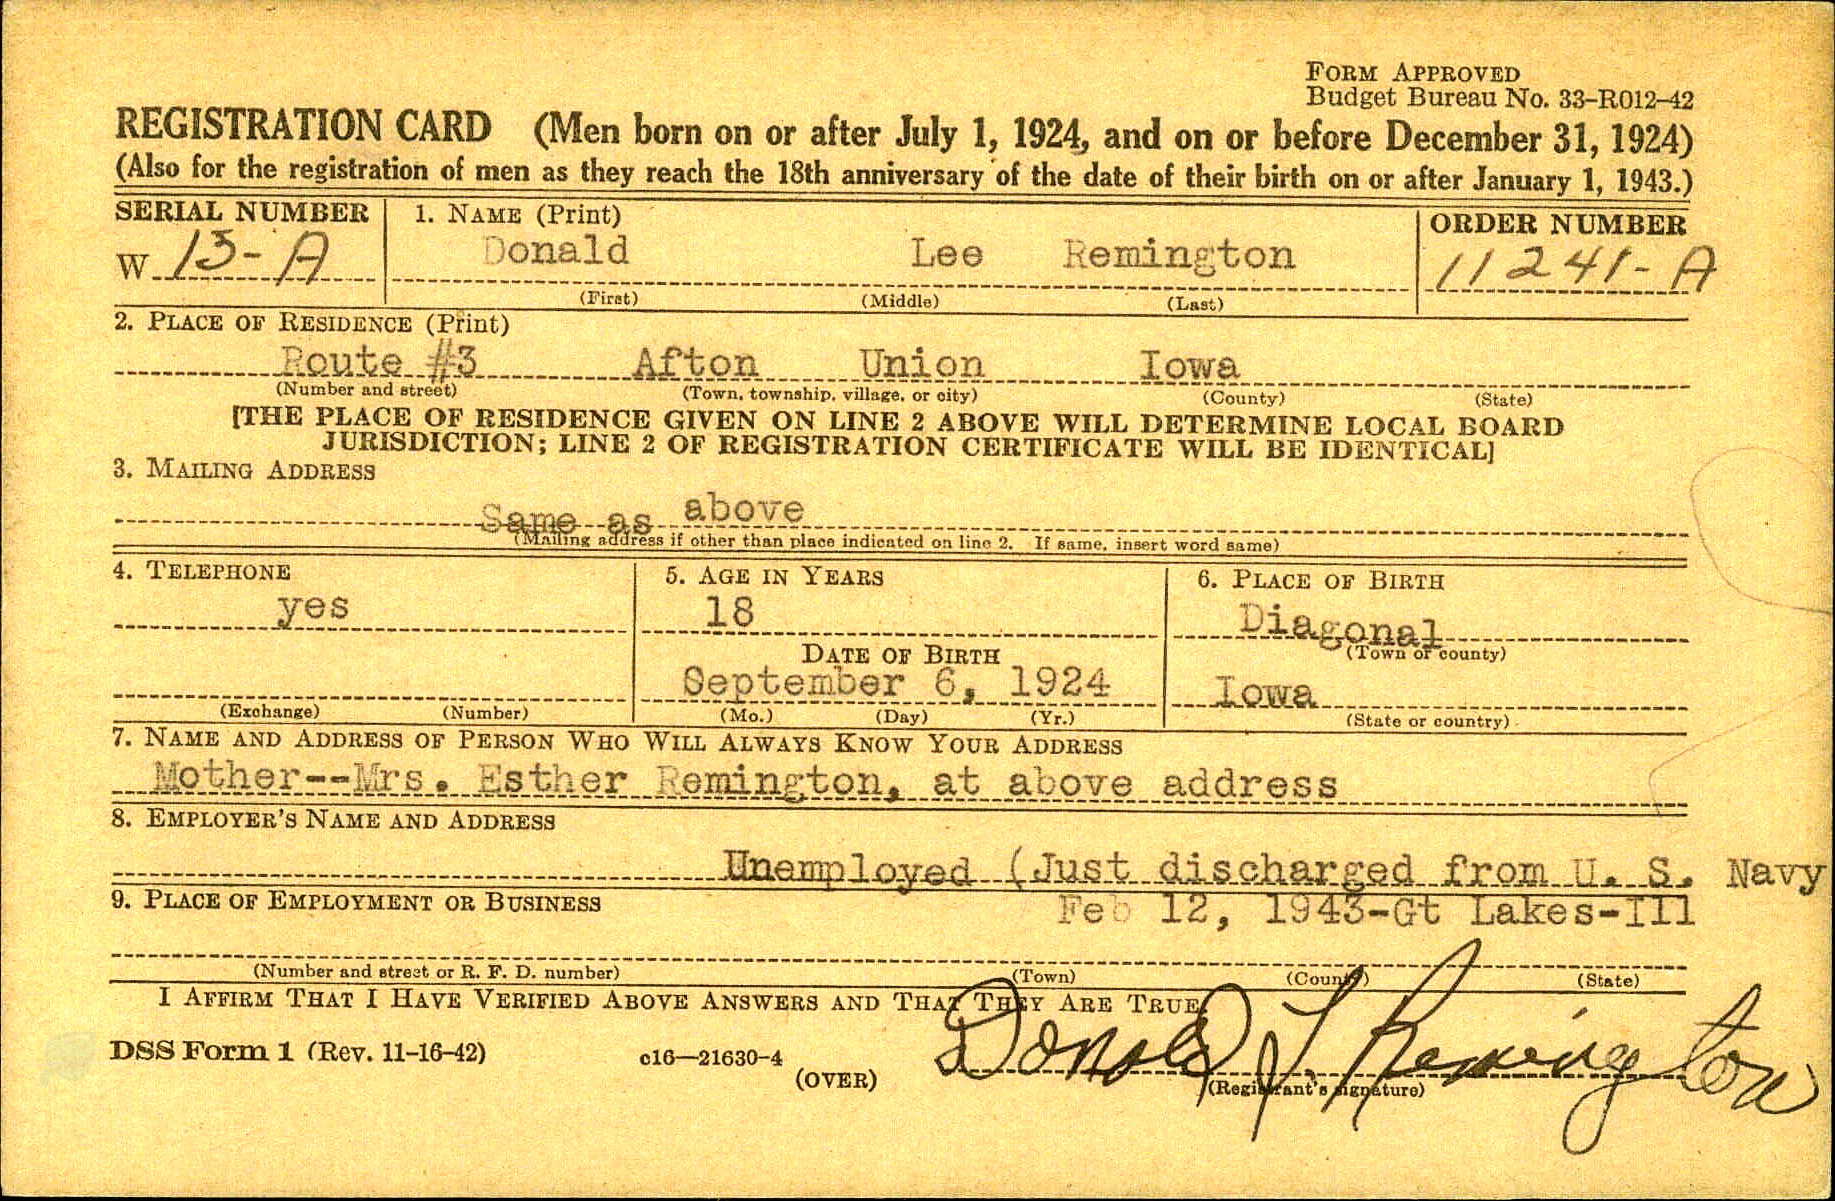 FORM APPROVED
Budget Bureau No. 33-R012-42
REGISTRATION CARD (Men born on or after July 1, 1924, and on or before December 31, 1924)
(Also for the registration of men as they reach the 18th anniversary of the date of their birth on or after January 1, 1943.)
SERIAL NUMBER 1. NAME (Print) ORDER NUMBER
W 13-A Donald Lee Remington 11241-A
(First) (Middle) (Last)
2. PLACE OF RESIDENCE (Print)
Route #3 Afton Union Iowa
(Number and street) (Town, township, village, or city) (County) (State)
[THE PLACE OF RESIDENCE GIVEN ON LINE 2 ABOVE WILL DETERMINE LOCAL BOARD
JURISDICTION; LINE 2 OF REGISTRATION CERTIFICATE WILL BE IDENTICAL]
3. MAILING ADDRESS
Same as above
(Mailing address if other than place indicated on line 2. If same, insert word same)
4. TELEPHONE 5. AGE IN YEARS 6. PLACE OF BIRTH
yes 18 Diagonal
(Town or county)
DATE OF BIRTH
September 6, 1924 Iowa
(Exchange) (Number) (Mo.) (Day) (Yr.) (State or country)
7. NAME AND ADDRESS OF PERSON WHO WILL ALWAYS KNOW YOUR ADDRESS
Mother--Mrs. Esther Remington, at above address
8. EMPLOYER'S NAME AND ADDRESS
Unemployed (Just discharged from U. S. Navy
9. PLACE OF EMPLOYMENT OR BUSINESS Feb 12, 1943-Gt Lakes-Ill
(Number and street or R. F. D. number) (Town) (County) (State)
I AFFIRM THAT I HAVE VERIFIED ABOVE ANSWERS AND THAT THEY ARE TRUE
DSS Form 1 (Rev. 11-16-42) c16—21630-4 Donald L Remington
(OVER) (Registrant's signature)